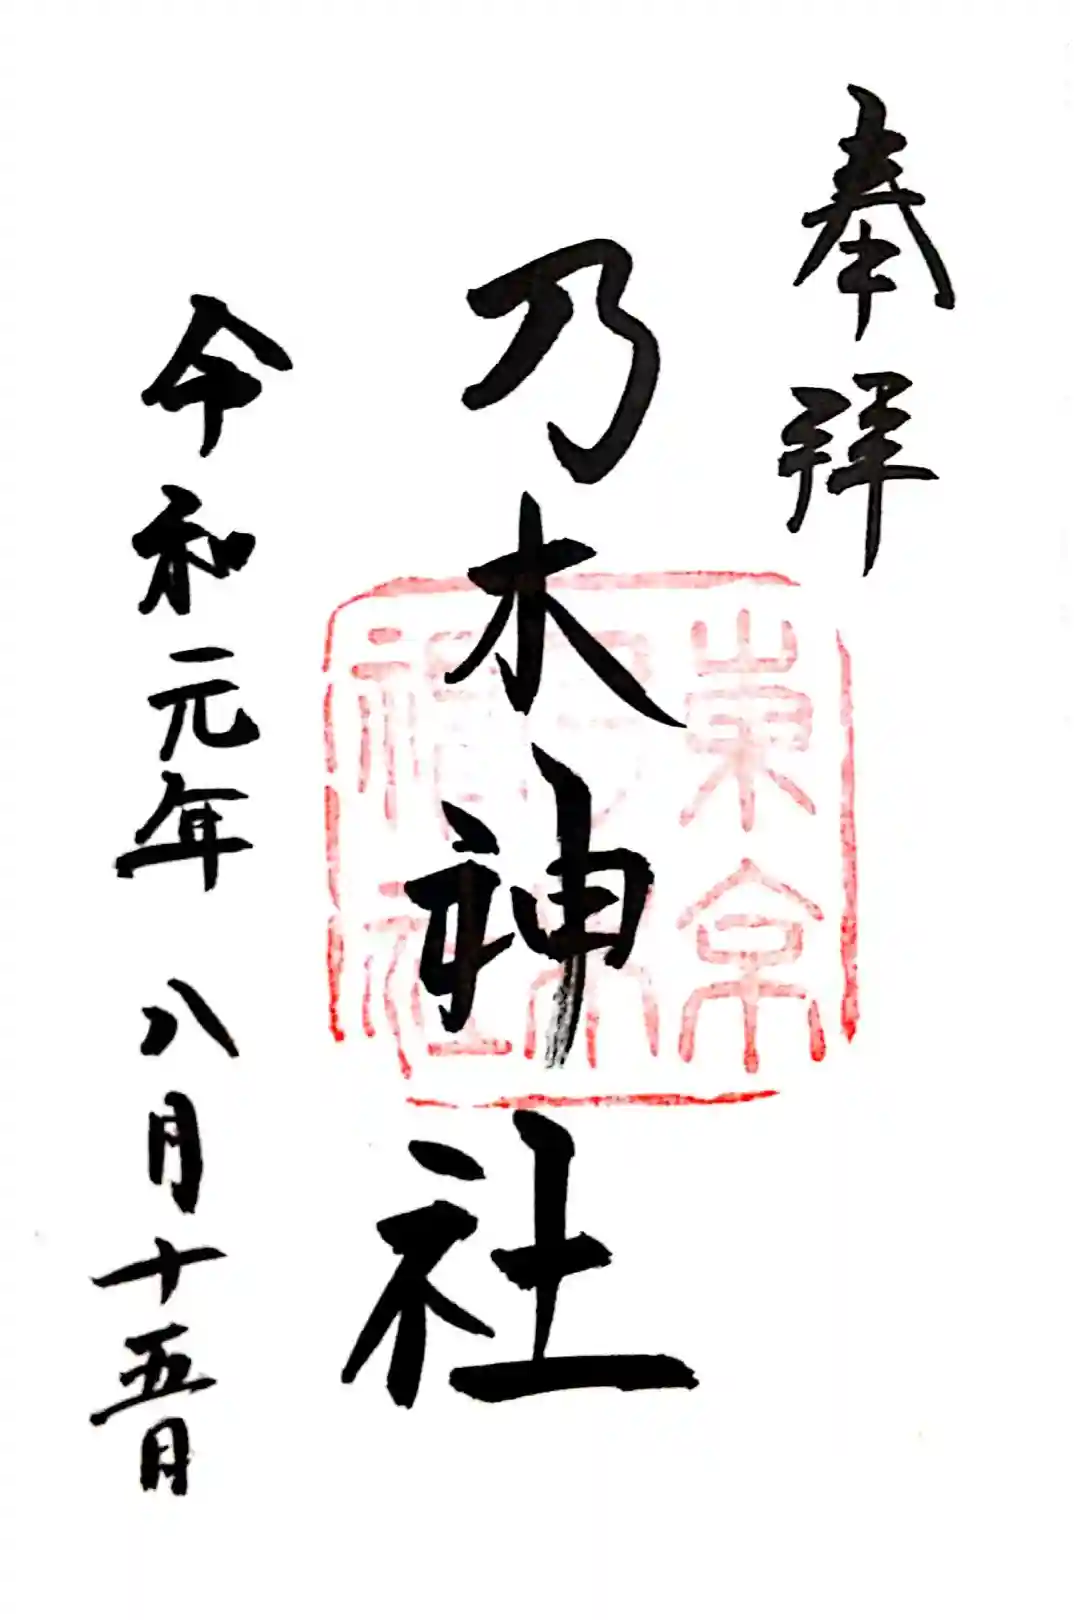 奉拝
乃木神社
東京乃木神社
令和元年 八月十五日